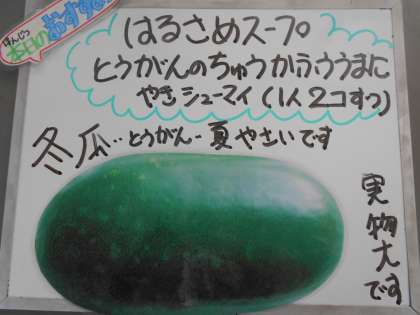 ほんじつ
本日のおすすめ
はるさめスープ
とうがんのちゅうかふううまに
やきシューマイ(1人2コずつ)
冬瓜‥とうがん-夏やさいです
実物大です